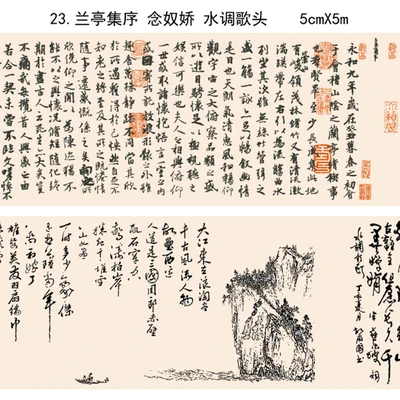 23.兰亭集序 念奴娇 水调歌头 5cmX5m
永和九年歲在癸丑暮春之初會
于會稽山陰之蘭亭脩禊事
也羣賢畢至少長咸集此地
有崇山峻領茂林脩竹又有清流激
湍暎帶左右引以為流觴曲水
列坐其次雖無絲竹管弦之
盛一觴一詠亦足以暢叙幽情
是日也天朗氣清惠風和暢仰
觀宇宙之大俯察品類之盛
所以遊目騁懷足以極視聽之
娛信可樂也夫人之相與俯仰
一世或取諸懷抱悟言一室之內
或因寄所託放浪形骸之外雖
趣舍萬殊靜躁不同當其欣
於所遇暫得於己快然自足不
知老之將至及其所之既惓情
隨事遷感慨係之矣向之所
欣俛仰之間以為陳迹猶不
能不以之興懷況脩短隨化終
期於盡古人云死生亦大矣豈
不痛哉每攬昔人興感之由
若合一契未嘗不臨文嗟悼不
大江東去浪淘盡
千古風流人物
故壘西邊
人道是三國周郎赤壁
亂石穿空
驚濤拍岸
捲起千堆雪
江山如畫
一時多少豪傑
遙想公瑾當年
小喬初嫁了
雄姿英發羽扇綸巾